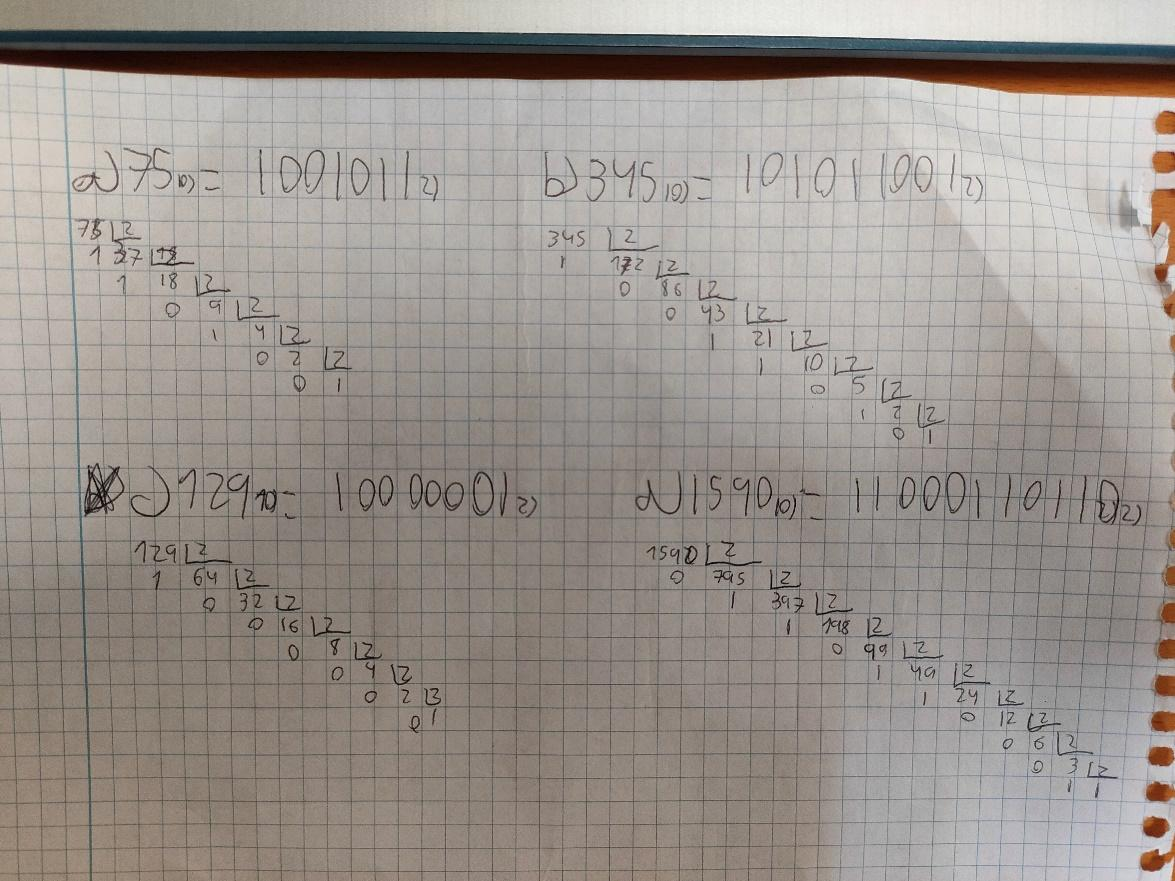 a) 75₁₀₎ = 1001011₂₎
75 2
1 37
1 18 2
0 9 2
1 4 2
0 2 2
0 1
b) 345₁₀₎ = 101011001₂₎
345 2
1 172 2
0 86 2
0 43 2
1 21 2
1 10 2
0 5 2
1 2 2
0 1
c) 129₁₀₎ = 10000001₂₎
129 2
1 64 2
0 32 2
0 16 2
0 8 2
0 4 2
0 2
0 1
d) 1590₁₀₎ = 11000110110₂₎
1590 2
0 795 2
1 397 2
1 198 2
0 99 2
1 49 2
1 24 2
0 12 2
0 6 2
0 3 2
1 1